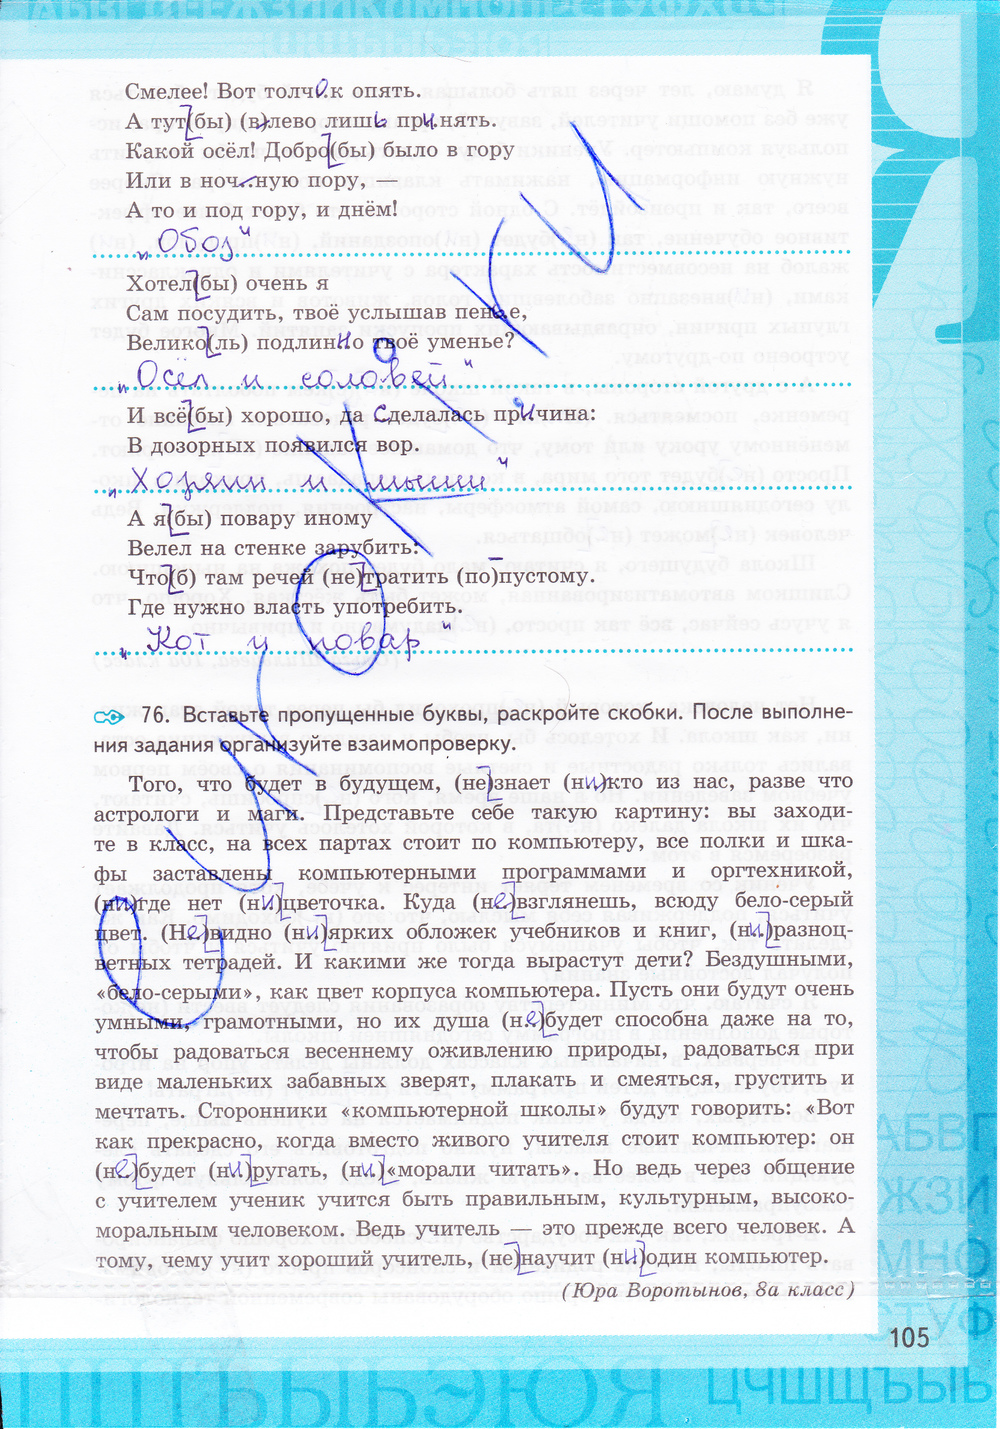 Смелее! Вот толчок опять.
А тут(бы) (в)лево лишь принять.
Какой осёл! Добро(бы) было в гору
Или в ноч..ную пору, —
А то и под гору, и днём!
„Обоз“
Хотел(бы) очень я
Сам посудить, твоё услышав пенье,
Велико(ль) подлинно твоё уменье?
„Осёл и соловей“
И всё(бы) хорошо, да сделалась причина:
В дозорных появился вор.
„Хозяин и мыши“
А я(бы) повару иному
Велел на стенке зарубить:
Что(б) там речей (не)тратить (по)пустому.
Где нужно власть употребить.
„Кот и повар“
76. Вставьте пропущенные буквы, раскройте скобки. После выполне-
ния задания организуйте взаимопроверку.
Того, что будет в будущем, (не)знает (ни)кто из нас, разве что
астрологи и маги. Представьте себе такую картину: вы заходи-
те в класс, на всех партах стоит по компьютеру, все полки и шка-
фы заставлены компьютерными программами и оргтехникой,
(ни)где нет (ни)цветочка. Куда (не)взглянешь, всюду бело-серый
цвет. (Не)видно (ни)ярких обложек учебников и книг, (ни)разноц-
ветных тетрадей. И какими же тогда вырастут дети? Бездушными,
«бело-серыми», как цвет корпуса компьютера. Пусть они будут очень
умными, грамотными, но их душа (не)будет способна даже на то,
чтобы радоваться весеннему оживлению природы, радоваться при
виде маленьких забавных зверят, плакать и смеяться, грустить и
мечтать. Сторонники «компьютерной школы» будут говорить: «Вот
как прекрасно, когда вместо живого учителя стоит компьютер: он
(не)будет (ни)ругать, (ни)«морали читать». Но ведь через общение
с учителем ученик учится быть правильным, культурным, высоко-
моральным человеком. Ведь учитель — это прежде всего человек. А
тому, чему учит хороший учитель, (не)научит (ни)один компьютер.
(Юра Воротынов, 8а класс)
105